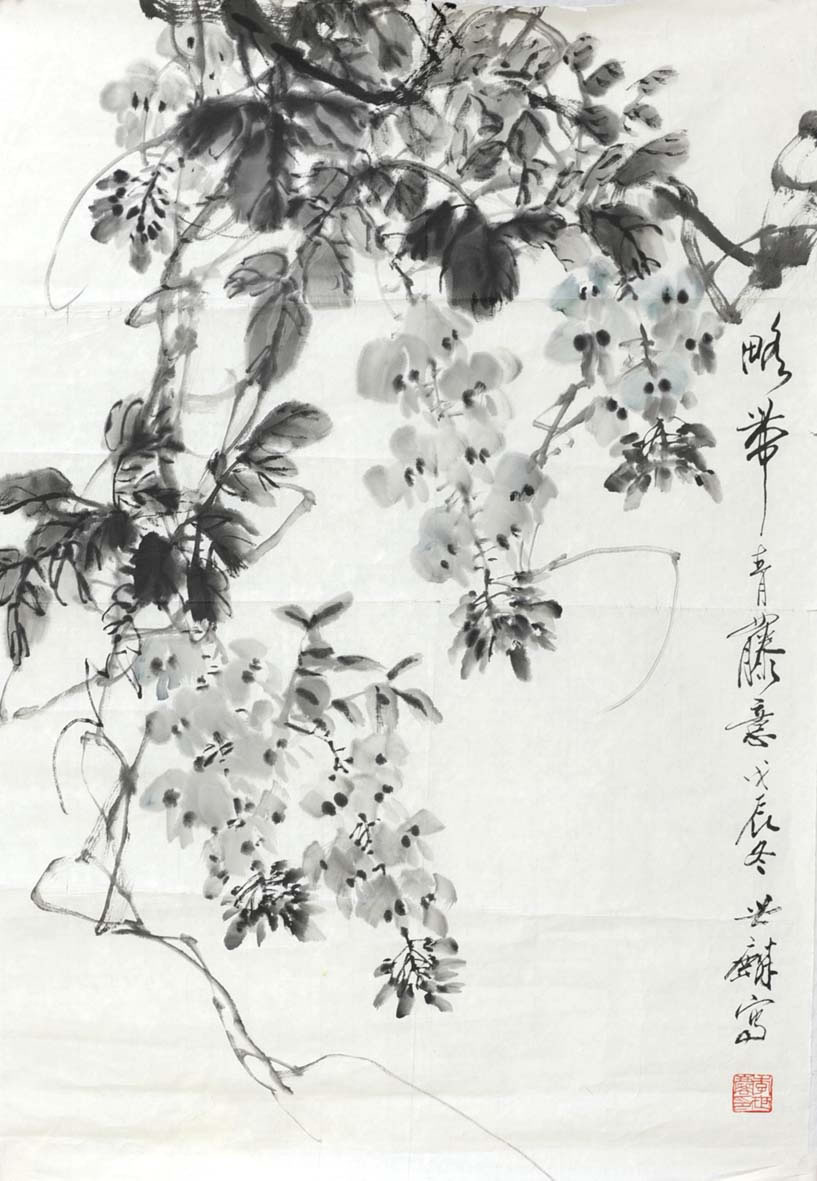 略帶青藤意戊辰冬世麟寫